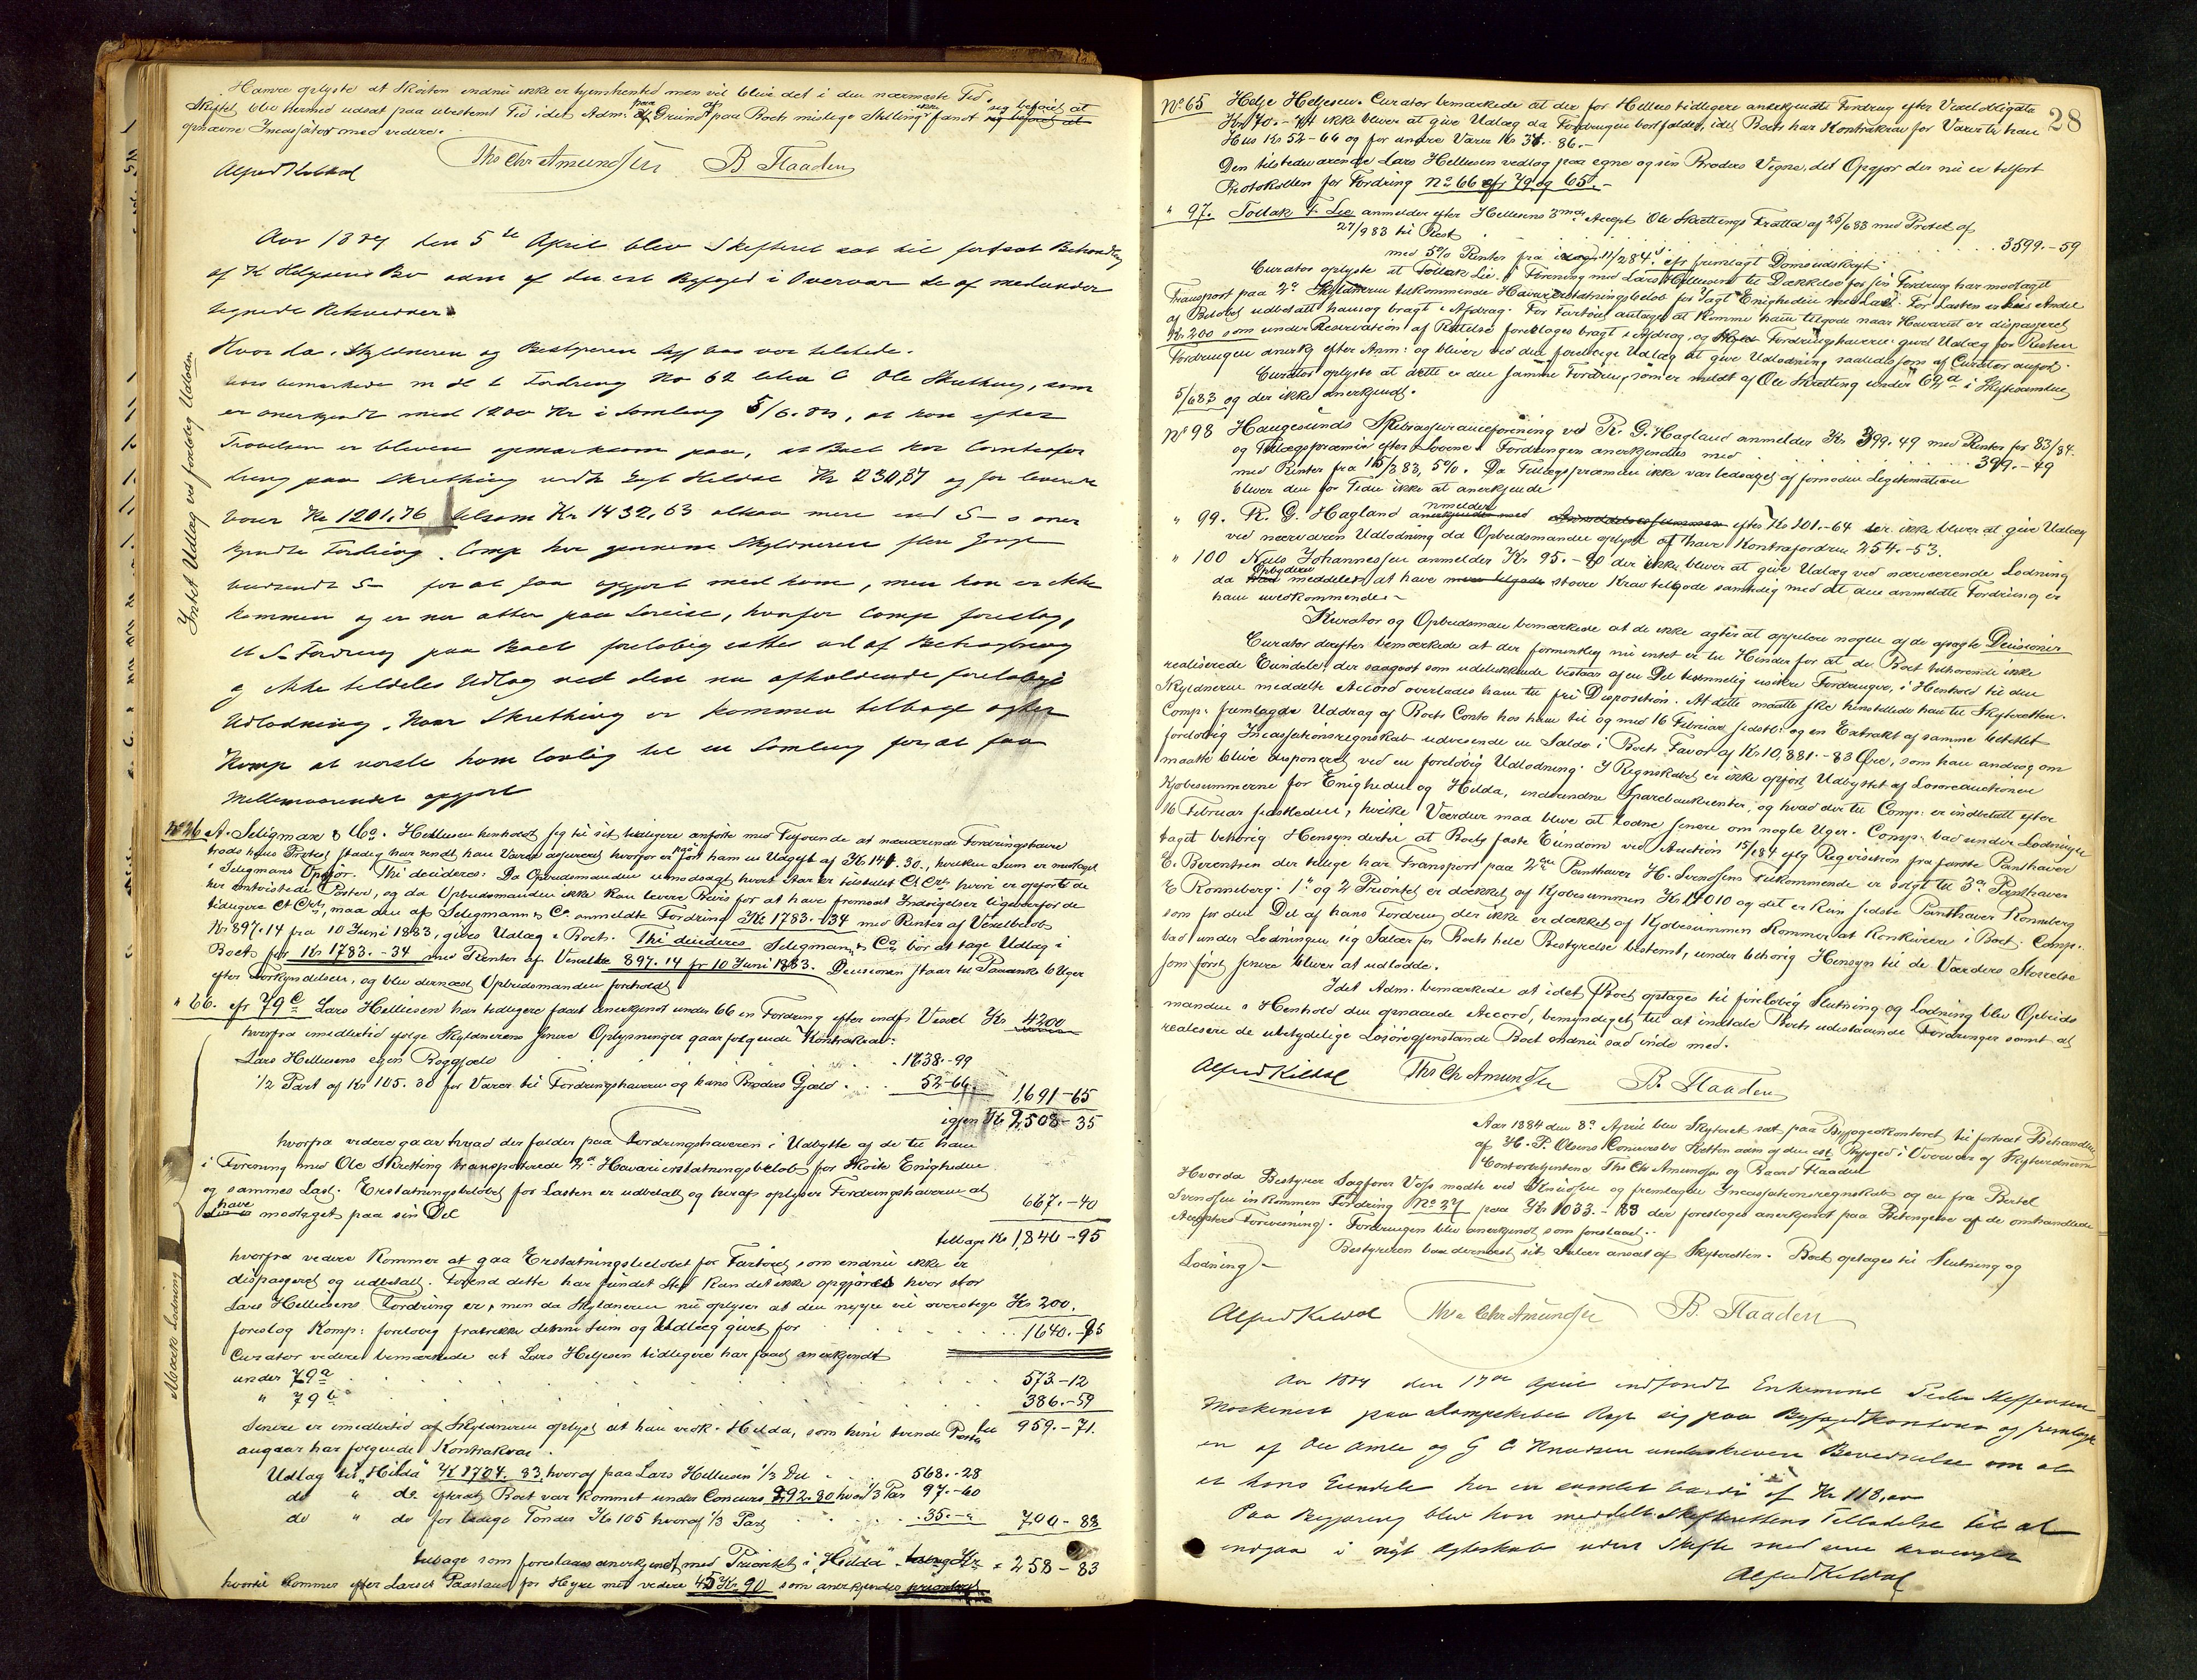 Hamre oplyste at Skøiten endnu ikke er hjemhented men vil blive det i den nærmeste Tid.
Skiftet blev hermed udsat paa ubestemt Tid idet Adm: paa Grund af paa Boets mislige Stilling ikke fandt sig beføiet at
opnævne Incassator med videre.
Alfred Kildal Ths Chr Amundsen B. Flaaden
Aar 1884 den 5te April blev Skifteret sat til fortsat Behandling
af H. Helgesens Bo adm af den cst Byfoged i Overvær de af medunder
tegnede Retsvidner.
Hvorda: Skyldneren og Bestyreren Sagf Voss var tilstede.
Voss bemærkede m H t Fordring No 62 litra C Ole Skretting, som
er anerkjendt med 1200 Kr i Samling 5/6.83, at han efter
Prøvelsen er bleven opmærksom paa, at Boet har Contrafor
dring paa Skretting vedk Jagt Hilda Kr 230,87 og for leverede
varer Kr 1201,76 tilsam Kr 1432,63 altsaa mere end S-s aner
kjendte Fordring. Comp har gjennem Skyldneren flere Gange
budsendt S- for at faa opgjort med ham, men han er ikke
kommen og er nu atter paa Søreise, hvorfor Comp foreslog,
at S- Fordring paa Boet foreløbig sættes ud af Betragtning
og ikke tildeles Udlæg ved den nu afholdende foreløbige
Udlodning. Naar Skretting er kommen tilbage agter
Komp at varsle ham lovlig til en Samling for at faa
Mellemværendet opgjort
Intet Udlæg ved foreløbig Udlodn.
No 26 A. Seligman & Co. Hellesen henholdt sig til sit tidligere anførte med Tilføiende at nærværende Fordringshaver
trods hans Protest stadig har sendt ham Varer
i Seligmans Opgjør. Thi decideres: Da Opbudsmanden uimodsagt hvert Aar er tilstillet Ct Crt hvori er opført de
her omtvistede Poster, og da Opbudsmanden ikke kan levere Bevis for at have fremsat Indsigelser ligeoverfor de
tidligere Ct Crt, maa den af Seligmann & Co anmeldte Fordring Kr 1783.-34 med Renter af Vexelbeløb
Kr 897.14 fra 10 Juni 1883, gives Udlæg i Boet. Thi decideres Seligmann & Co bør at tage Udlæg i
Boet for Kr 1783.-34 med Renter af Vexelbe 897.14 fr 10 Juni 1883. Decisionen staar til Paaanke 6 Uger
efter Forkyndelsen, og blev dernæst Opbudsmanden foreholdt
" 66. cfr 79c Lars Hellesen har tidligere faaet anerkjendt under 66 en Fordring efter indfr Vexel Kr 4200
hvorfra imidlertid ifølge Skyldnerens senere Oplysninger gaar følgende Kontrakrav:
Lars Hellesens egen Boggjæld . . . . 1638.-99
1/2 Part af Kr 105.30 for Varer til Fordringshaveren og hans Broders Gjæld . . . 52-66 1,691-65
igjen Kr 2,508-35
hvorfra videre gaar hvad der falder paa Fordringshaveren i Udbytte af de til ham
i Forening med Ole Skretting transporterede 2de Havarierstatningsbeløb for Skøite Enigheden
og sammes Last. Erstatningsbeløbet for Lasten er udbetalt og heraf oplyser Fordringshaveren at
have modtaget paa sin Del 667.-40
tilbage Kr 1,840-95
hvorfra videre kommer at gaa Erstatningsbeløbet for Fartøiet som endnu ikke er
dispasjeret og udbetalt. Forend dette har fundet Sted kan det ikke opgjøres hvor stor
Lars Hellesens Fordring er, men da Skyldneren nu oplyser at den neppe vil overstige Kr 200,
foreslog Komp: foreløvig fratrække denne Sum og Udlæg givet for . . . 1640.-95
Curator videre bemærkede at Lars Helgesen tidligere har faaet anerkjendt
under 79a . . . 573-12
" 79b . . . 386.-59
959.-71.
Senere er imidlertid af Skyldneren oplyst at han vedk. Hilda, som hine tvende Poster
angaar har følgende Kontrakrav.
Udlag til "Hilda" Kr 1704.83, hvoraf paa Lars Hellesen 1/3 Del . . 568.-28
do " do efterat Boet var kommet under Concurs 292.80 hvor 1/3 Par 97.-60
do " do for ledige Tønder Kr 105 hvoraf 1/3 Part . . . 35.-" 700-88
tilbage som foreslaaes anerkjendt med Prioritet i "Hilda" Kr " 258-83
hvortil kommer efter Larses Paastand for Hyre med videre 45 Kr 90 som anerkjendes
Mærk Lodning
28
No 65 Helge Helgesen. Curator bemærkede at der for Helles tidligere anerkjendte Fordring efter Vexelobligata
Kr 70.-44 ikke bliver at give Udlæg da Fordringen bortfalder, idet Boet har Kontrakrav for Varer til hans
Hus Kr 52-66 og for andre Varer Kr 34.86.-
Den tilstedeværende Lars Hellesen vedtog paa egne og sin Broders Vegne, det Opgjør der nu er tilført
Protokollen for Fordring No 66 cfr 79 og 65.-
" 97. Tollak T. Lie anmelder efter Hellesens 3mds Accept Ole Skrettings Tratta af 25/6 83 med Protest af
27/9 83 til Rest . . . 3599.-59
med 5% Renter fra idag 11/2 84. cfr fremlagt Domsudskrift.
Curator oplyste at Tollak Lie i Forening med Lars Hellesen til Dækkelse for sin Fordring har modtaget
Transport paa 2de Skyldneren tilkommende Havarierstatningsbeløb for Jagt Enigheden med Last. For Lasten er hans Andel
af Beløbet udbetalt ham og bragt i Afdrag. For Fartøiet antages at komme ham tilgode naar Havariet er dispasjeret
Kr 200 som under Reservation af Rettelse foreslages bragt i Afdrag, og Fordringshaveren givet Udlæg for Resten
Fordringen anerkj efter Anm: og bliver ved den foreløbige Udlæg at give Udlodning saaledes som af Curator anført.
Curator oplyste at dette er den samme Fordring, som er meldt af Ole Skretting under 62a i Skiftesamling
5/6 83 og der ikke anerkjendt.
No 98 Haugesunds Skibsassuranceforening ved R. G. Hagland anmelder Kr 399.49 med Renter for 83/84.
og Tillægspræmie efter Lovene. Fordringen anerkjendtes med . . . 399.-49
med Renter fra 15/3 83, 5%. Da Tillægspræmien ikke var ledsaget af fornøden Legitimation
bliver den for Tiden ikke at anerkjende
" 99. R. G. Hagland anmelder efter Kr 201.-64 der ikke bliver at give Udlæg
ved nærværende Udlodning da Opbudsmanden oplyste at have Kontrafordring 254.-53.
" 100 Niels Johannessen anmelder Kr 95.-80 der ikke bliver at give Udlæg ved nærværende Lodning
da Opbyderen meddeler at have større Krav tilgode samtidig med at den anmeldte Fordring er
ham uvedkommende.-
Kurator og Opbudsman bemærkede at de ikke agter at appelere nogen af de afsagte Decisioner
Curator derefter bemærkede at der formentlig nu intet er til Hinder for at de Boet tilhørende ikke
realiserede Eiendeler der saagodt som udelukkende bestaar af en Del temmelig usikre Fordringer, i Henhold til den
Skyldneren meddelte Accord overlades ham til fri Disposition. At dette maatte ske henstillede han til Skifteretten.
Comp: fremlagde Uddrag af Boets Conto hos ham til og med 16 Februar sidstl: og en Extrakt af samme betitlet
foreløvig Incassationsregnskab udvisende en Saldo i Boets Favør af Kr 10,881.-83 Øre, som han androg om
maatte blive disponeret ved en foreløvig Udlodning. I Regnskabet er ikke opført Udbyttet af Løsøreauctionen
Kjøbesummerne for Enigheden og Hilda, indvundne Sparebankrenter, og hvad der til Comp: er indbetalt efter
16 Februar sidstleden, hvilke Værdier maa blive at lodne senere om nogle Uger. Comp: bad under Lodningen
taget behørig Hensyn dertil at Boets faste Eiendom ved Auction 15/1 84 eflg Reqvisition fra første Panthaver
C. Berentsen der tillige har Transport paa 2den Panthaver H. Svendsens Tilkommende er solgt til 3die Panthaver
E Rønneberg. 1ste og 2 Prioritet er dækket af Kjøbesummen Kr 14010 og det er kun sidste Panthaver Rønneberg
som for den Del af hans Fordring der ikke er dækket af Kjøbesummen kommer at konkurere i Boet. Comp.
bad under Lodningen sig Salær for Boets hele Bestyrelse bestemt, under behørig Hensyn til de Værdiers Størrelse
som først senere bliver at udlodde.
Idet Adm. bemærkede at idet Boet optages til foreløbig Slutning og Lodning blev Opbuds
manden i Henhold den opnaaede Accord, bemyndiget til at indtale Boets udestaaende Fordringer samt at
realisere de ubetydelige Løsøregjenstande Boet endnu sad inde med.
Alfred Kildal Ths Ch Amundsen B. Flaaden
Aar 1884 den 8de April blev Skifteret sat paa Byfogedkontoret til fortsat Behandling
af H. P. Olsens Concursbo Retten adm af den cst Byfoged i Overvær af Skiftevidnerne
Contorbetjentene Ths Chr Amundsen og Baard Flaaden
Hvorda Bestyrer Sagfører Voss mødte ved Knudsen og fremlagde Incassationsregnskab og en fra Bertel
Svendsen inkommen Fordring No 37 paa Kr 1033.-83 der foresloges anerkjendt paa Betingelse af de omhandlede
Accepters Forevisning. Fordringen blev anerkjendt som foreslaaet.-
Bestyreren bad dernæst sit Salær ansat af Skifteretten. Boet optages til Slutning og
Lodning.-
Alfred Kildal Ths Chr Amundsen B. Flaaden
Aar 1884 den 17de April indfandt Enkemand Peder Steffensen
Maskinist paa Dampskibet Røst sig paa Byfogedkontoret og fremlagde
en af Ole Amle og G C Knudsen underskreven Bevidnelse om at
at hans Eiendele har en samlet Værdi af Kr 118,00
Paa Begjæring blev ham meddelt Skifterettens Tilladelse til at
indgaa i nyt Ægteskab uden Skifte med sine Arvinger
Alfred Kildal